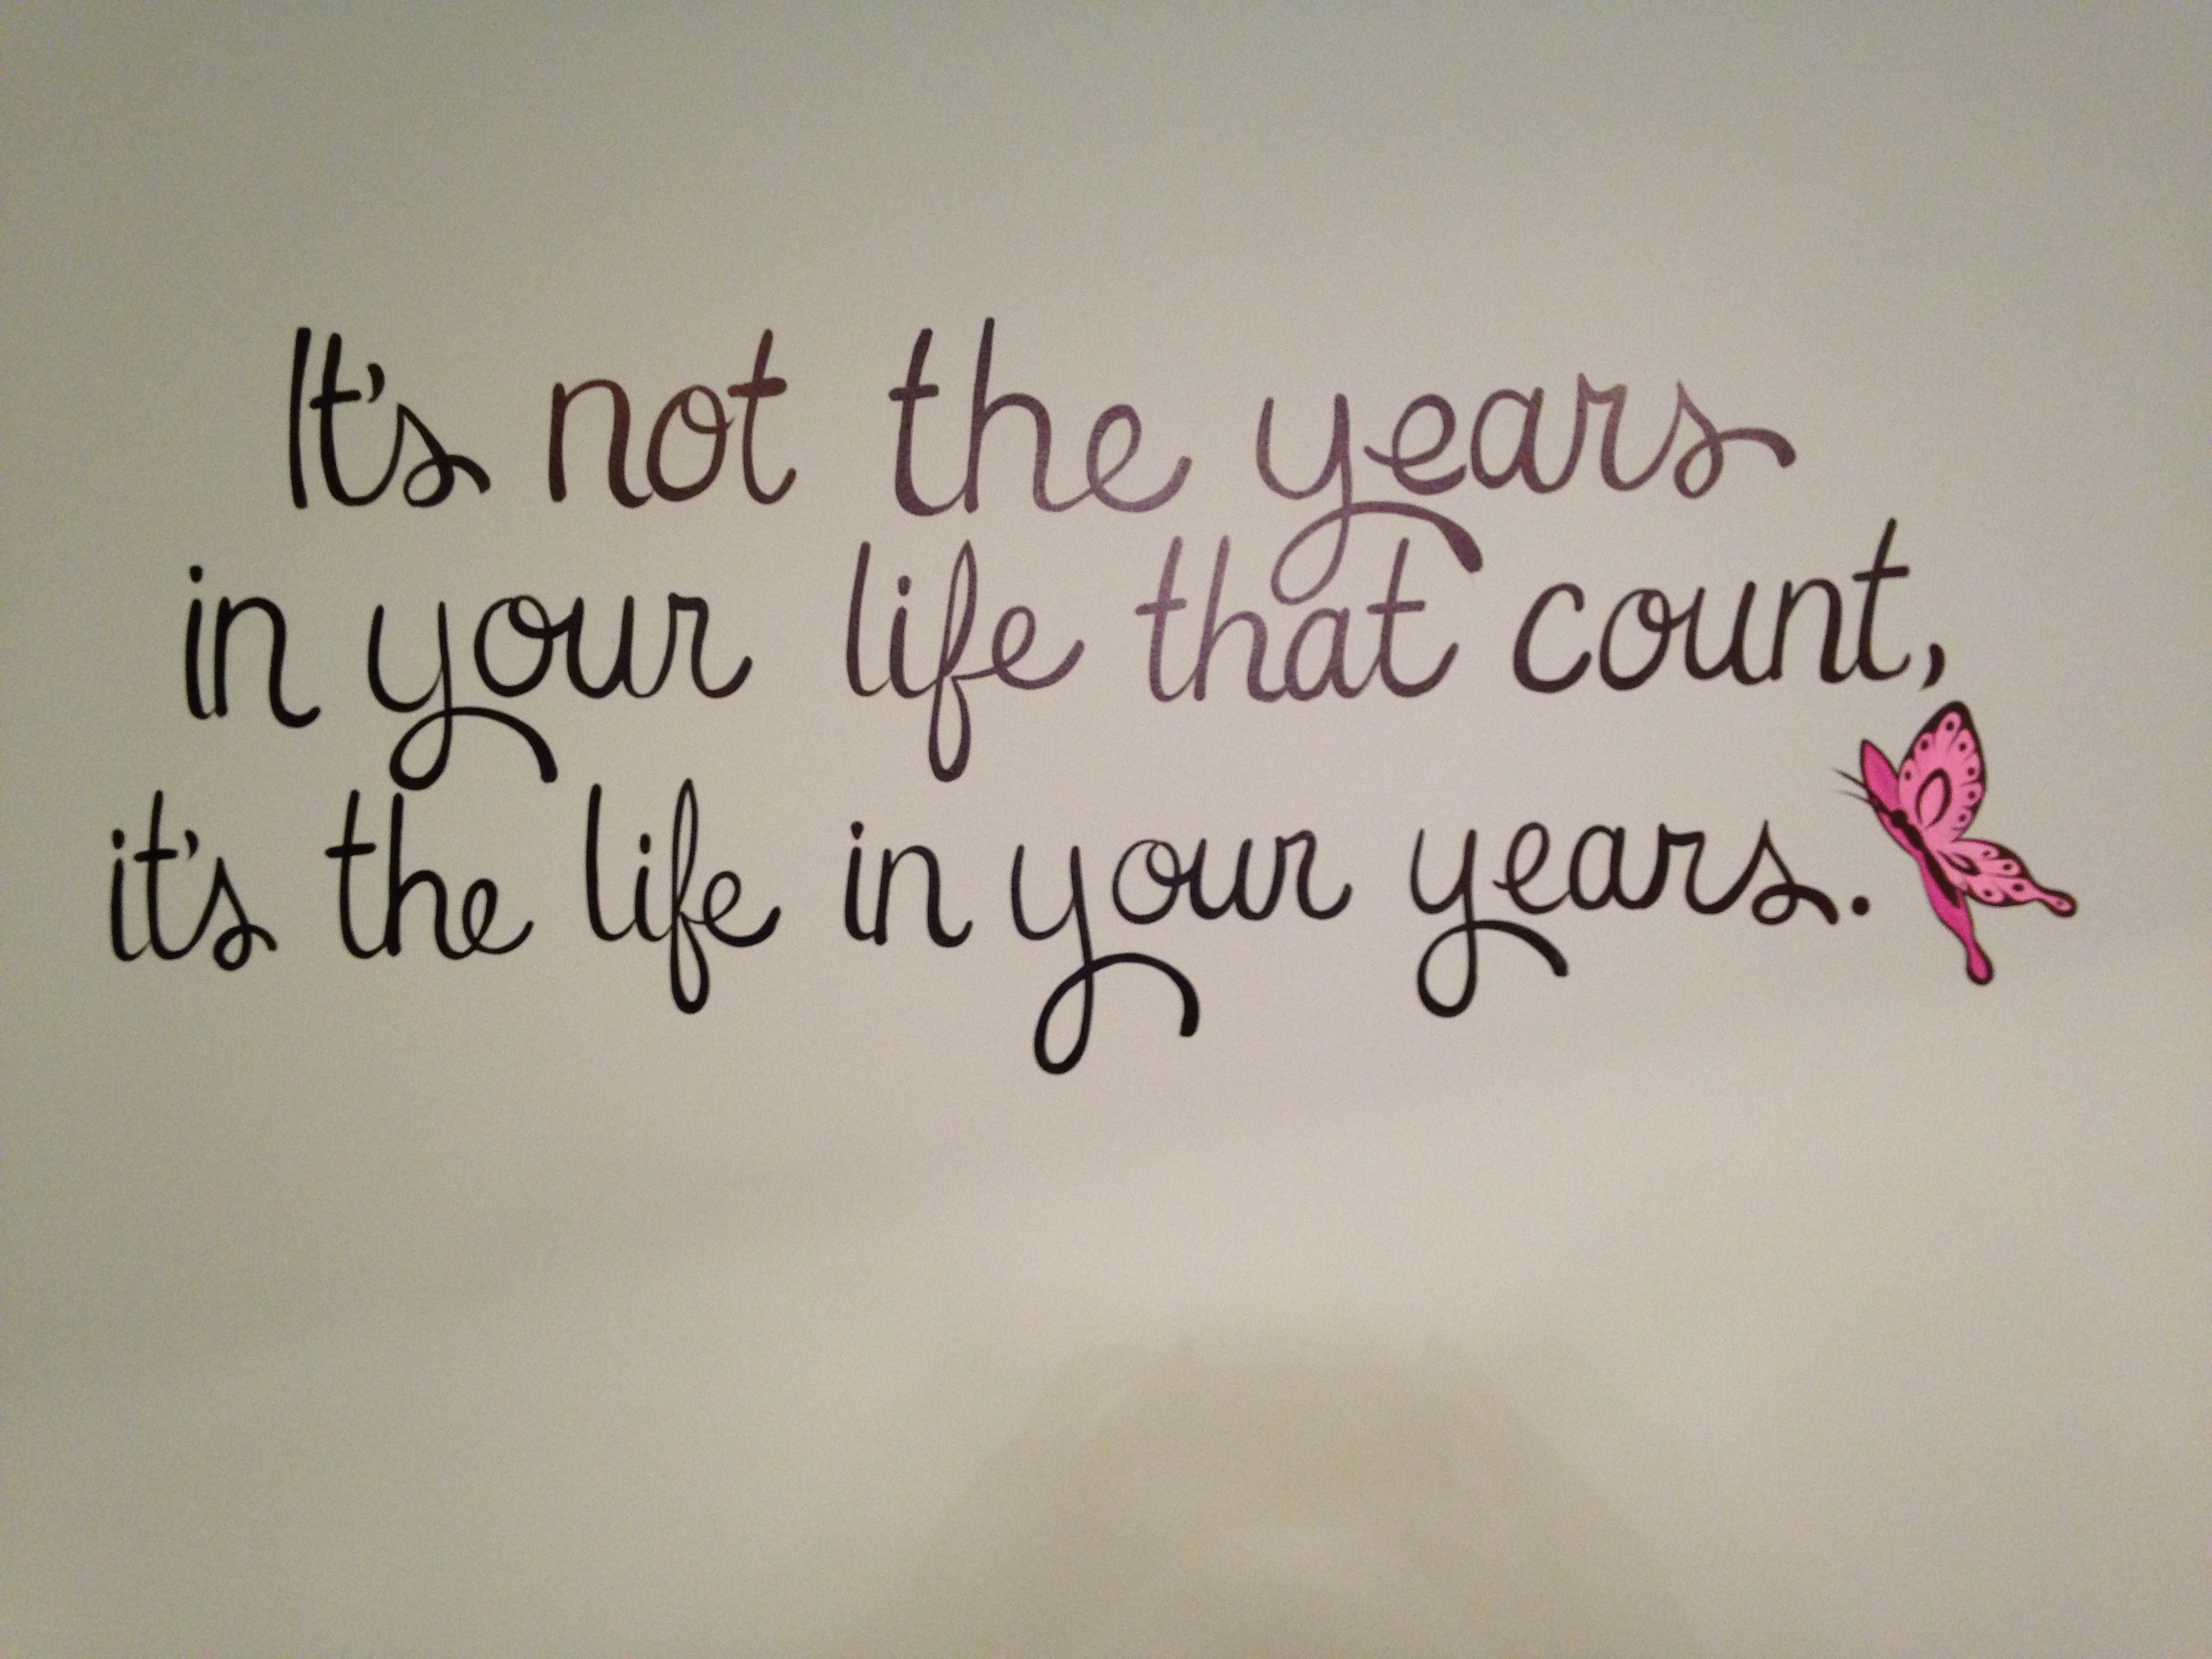 It's not the years
in your life that count,
it's the life in your years.